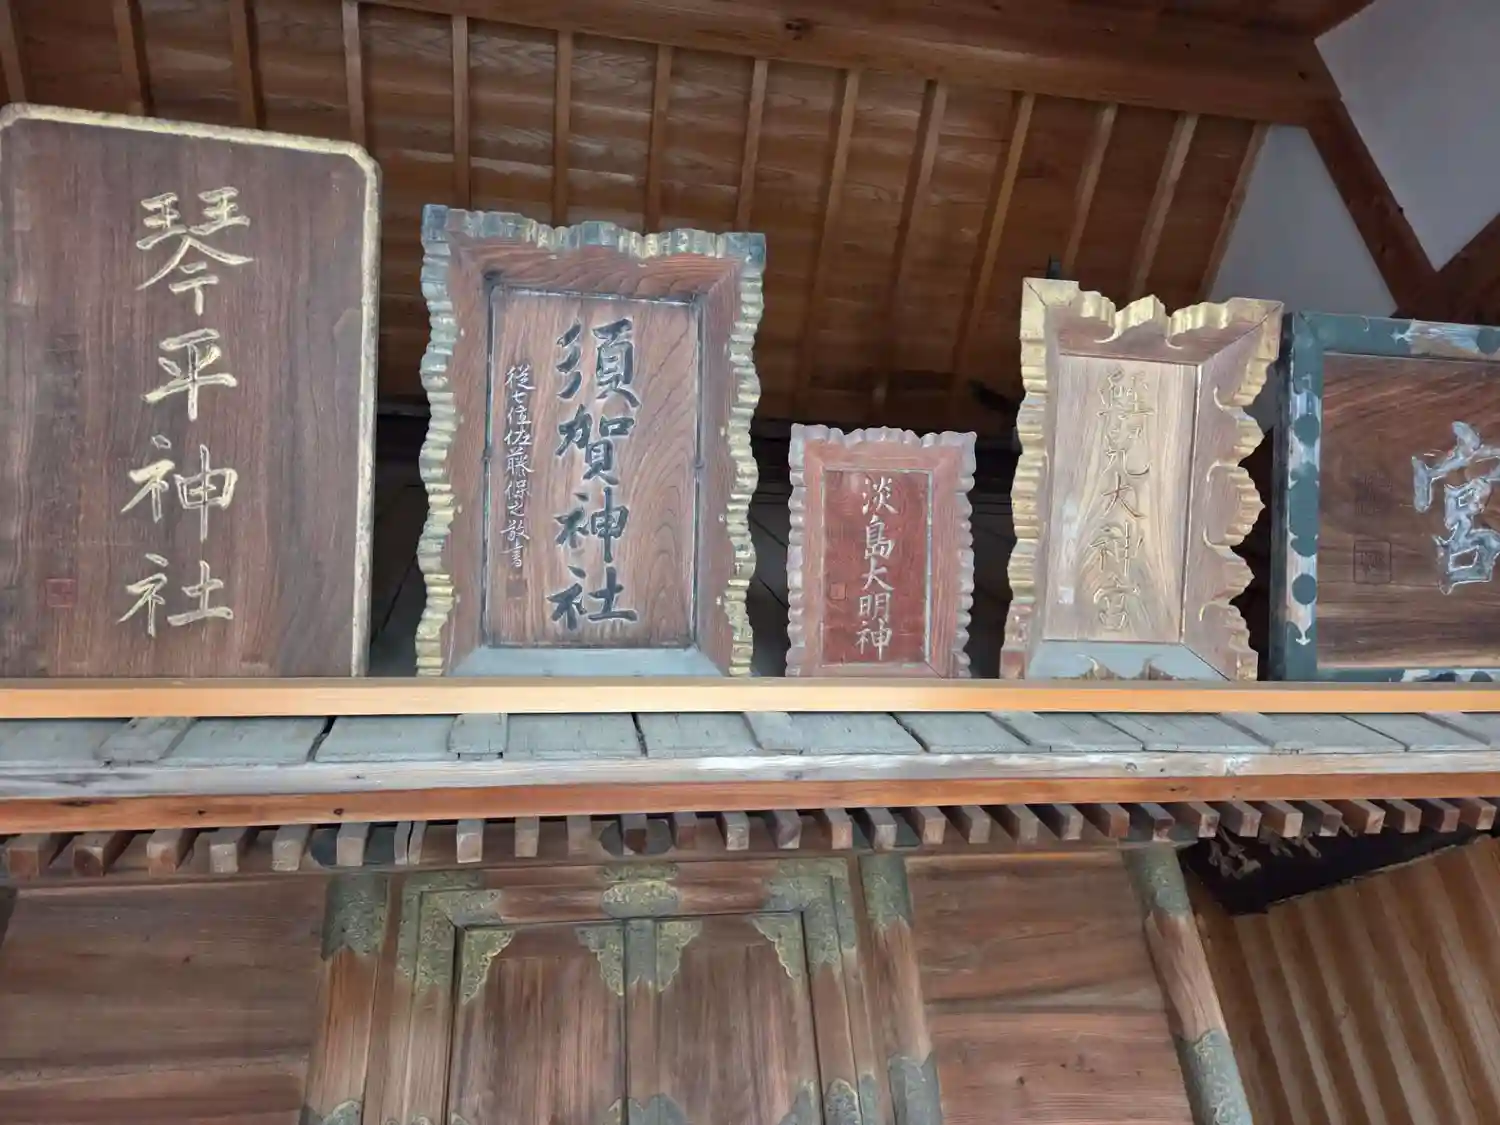 琴平神社
須賀神社
従七位佐藤保之敬書
淡島大明神
大神宮
宮